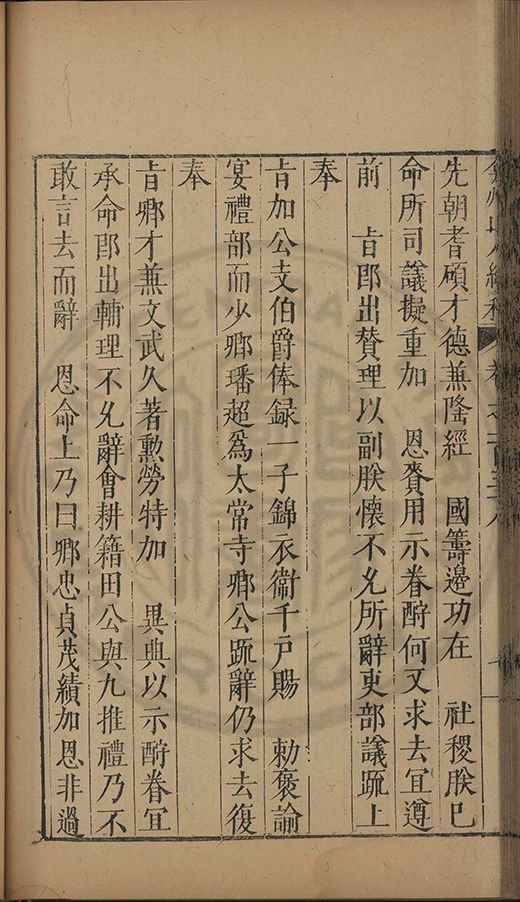 先朝耆碩才德兼隆經　國籌邊功在　社稷朕已
命所司議擬重加　恩賚用示眷酧何又求去宜遵
前　旨卽出贊理以副朕懷不允所辭吏部議疏上
奉
旨加公支伯爵俸録一子錦衣衛千戶賜　勅褒諭
宴禮部而少卿璠超爲太常寺卿公疏辭仍求去復
奉
旨卿才兼文武久著勲勞特加　異典以示酧眷宜
承命卽出輔理不允辭會耕籍田公與九推禮乃不
敢言去而辭　恩命上乃曰卿忠貞茂績加恩非過